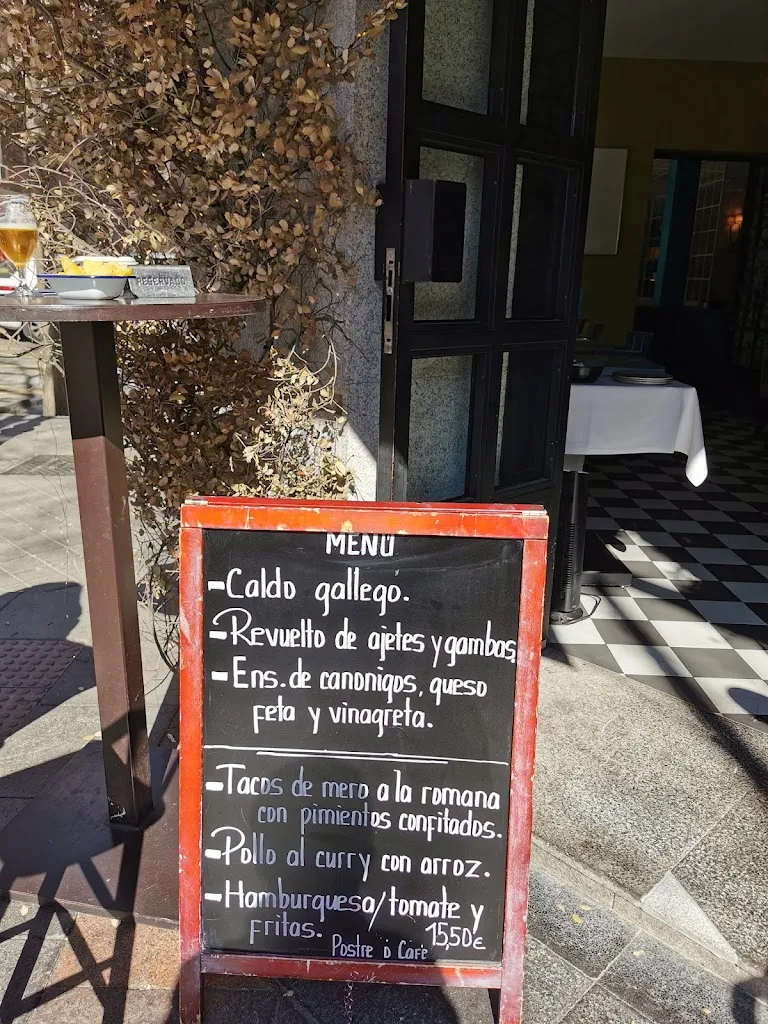 RESERVADO
MENÚ
-Caldo gallego.
-Revuelto de ajetes y gambas
-Ens. de canonigos, queso
feta y vinagreta.
-Tacos de mero a la romana
con pimientos confitados.
-Pollo al curry con arroz.
-Hamburguesa/tomate y
fritas. 15,50€
Postre o Café